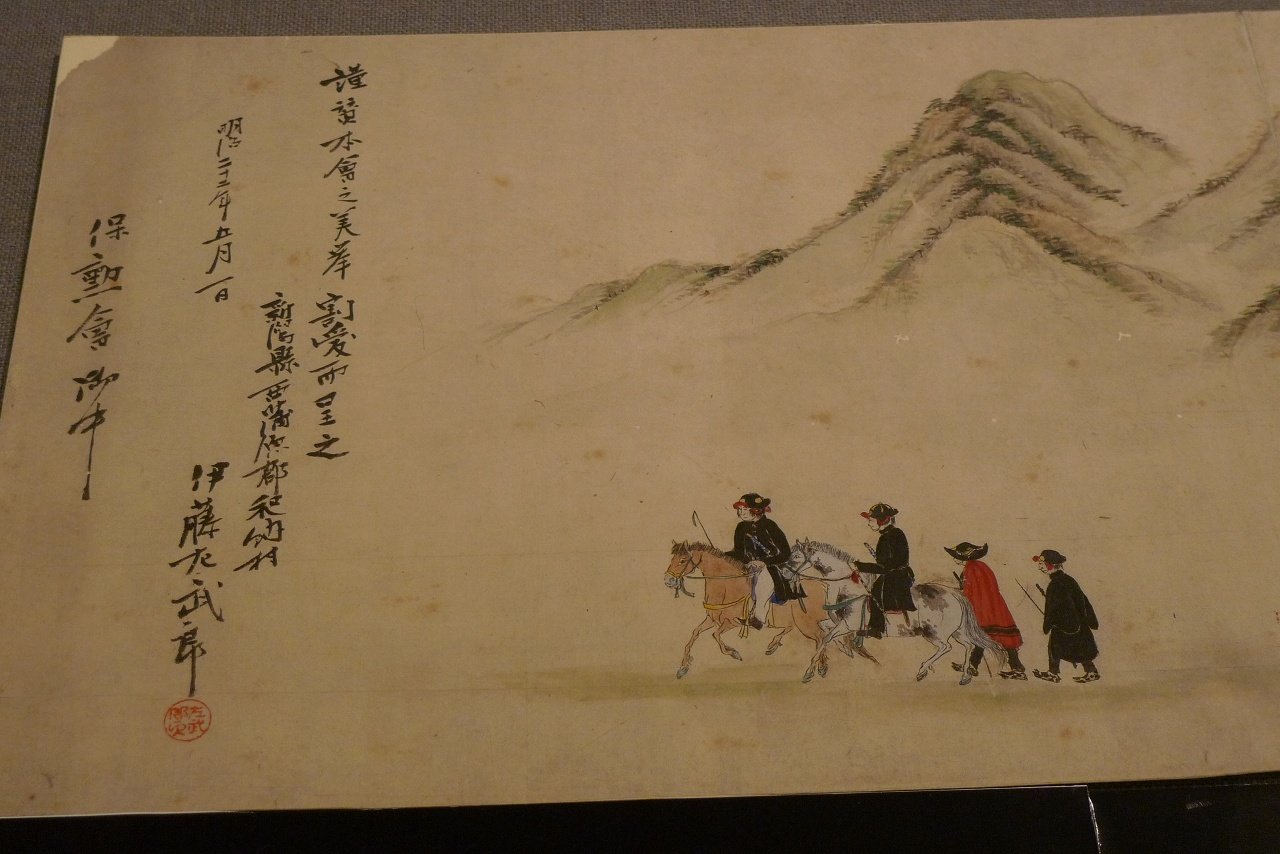 謹賛本會之美挙割愛而呈之
新潟縣西蒲原郡和納村
伊藤左武郎
明治二十二年五月一日
保勲會御中